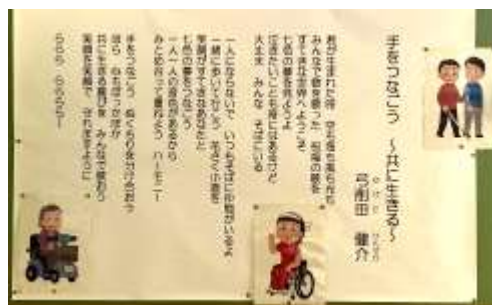 手をつなごう　～共に生きる～
弓削田　健介
ゆげた　けんすけ
君が生まれた時　空も海も風も光も
みんなで歌を歌った　祝福の歌を
すてきな世界へようこそ
七色の夢を見ようよ
泣きたいことも時にはあるけど
大丈夫　みんな　そばにいる
一人にならないで　いつもそばに仲間がいるよ
一緒に歩いて行こう　花さく小道を
笑顔がすてきなあなたと
七色の夢をつなごう
一人一人の音色があるから
みとめ合って重ねよう　ハーモニー
手をつなごう　ぬくもりを分け合おう
ほら　心もぽっかぽか
共に生きる喜びを　みんなで歌おう
笑顔を笑顔で　守れますように
ららら　ららららー